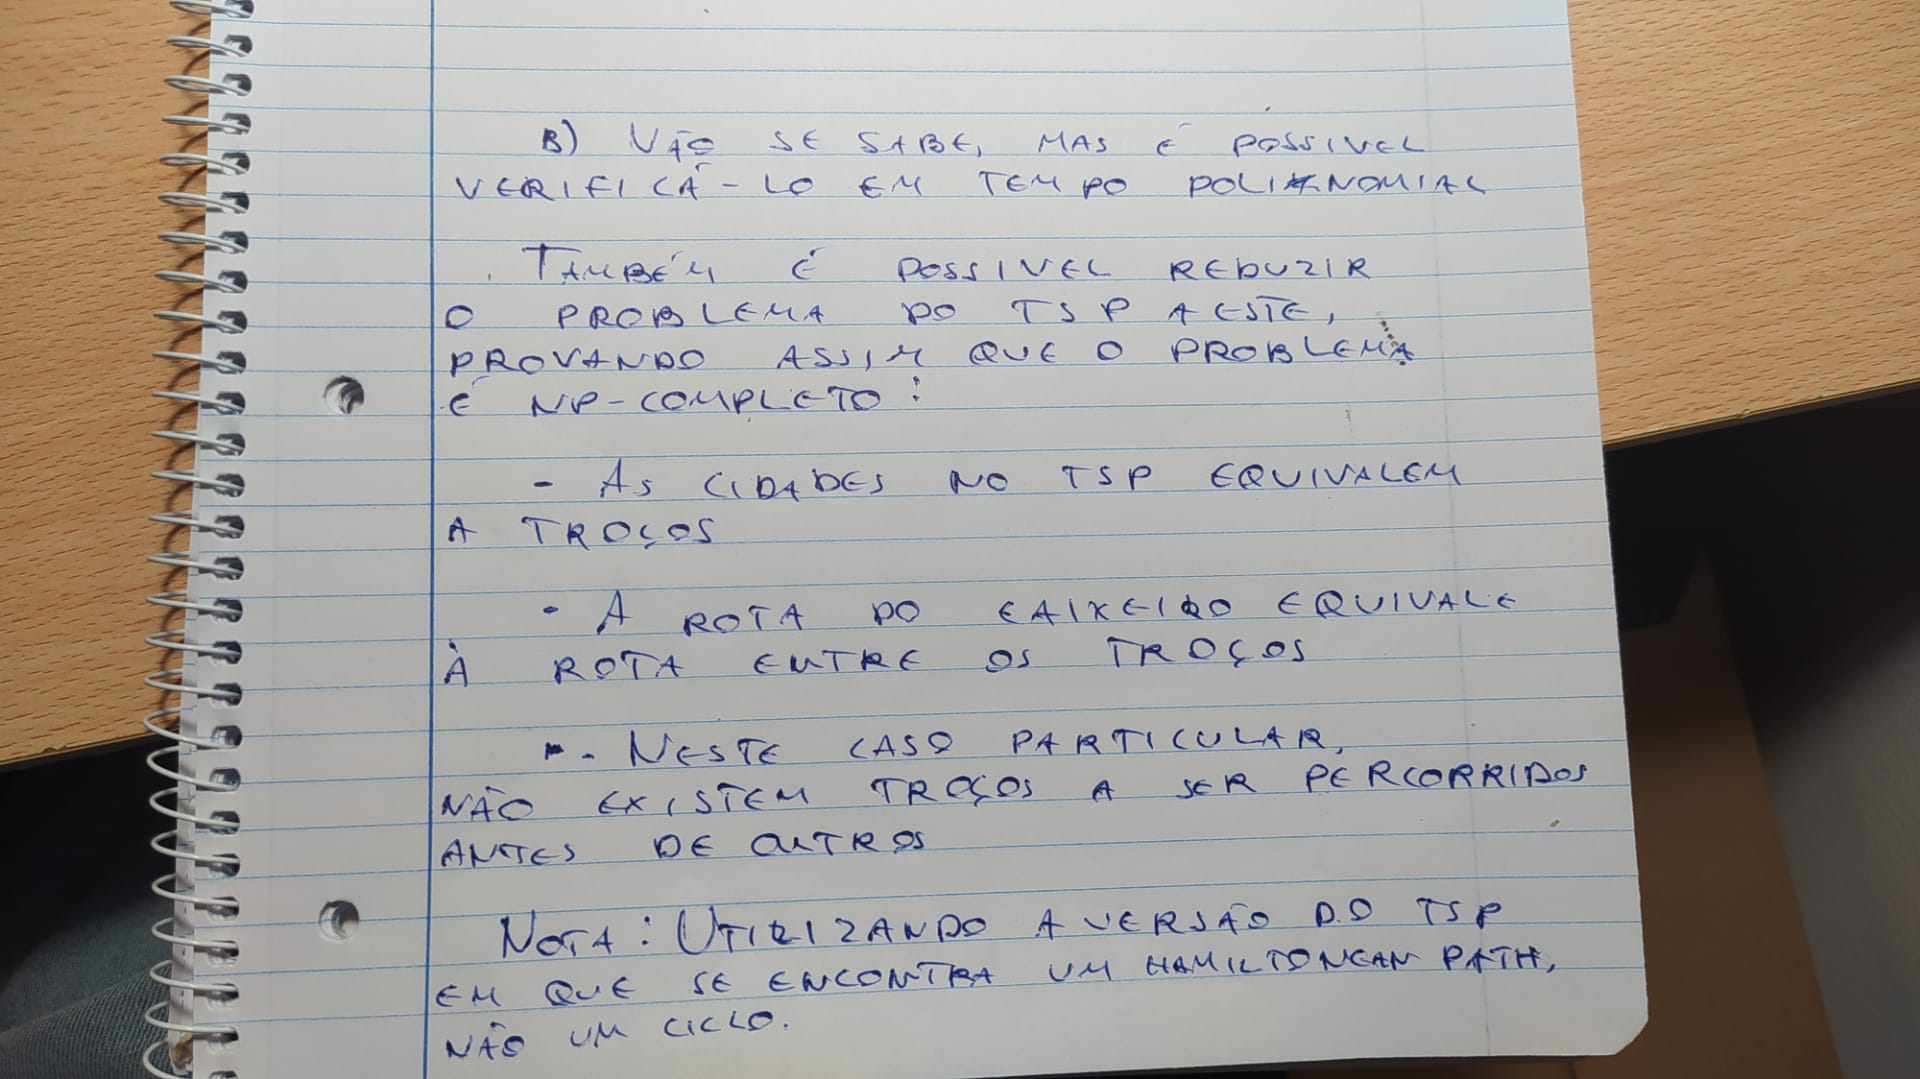 B) NÃO SE SABE, MAS É POSSIVEL
VERIFICÁ-LO EM TEMPO POLINOMIAL
TAMBÉM É POSSIVEL REDUZIR
O PROBLEMA DO TSP A ESTE,
PROVANDO ASSIM QUE O PROBLEMA
É NP-COMPLETO:
- AS CIDADES NO TSP EQUIVALEM
A TROÇOS
- A ROTA DO CAIXEIRO EQUIVALE
À ROTA ENTRE OS TROÇOS
- NESTE CASO PARTICULAR,
NÃO EXISTEM TROÇOS A SER PERCORRIDOS
ANTES DE OUTROS
NOTA: UTILIZANDO A VERSÃO DO TSP
EM QUE SE ENCONTRA UM HAMILTONEAN PATH,
NÃO UM CICLO.